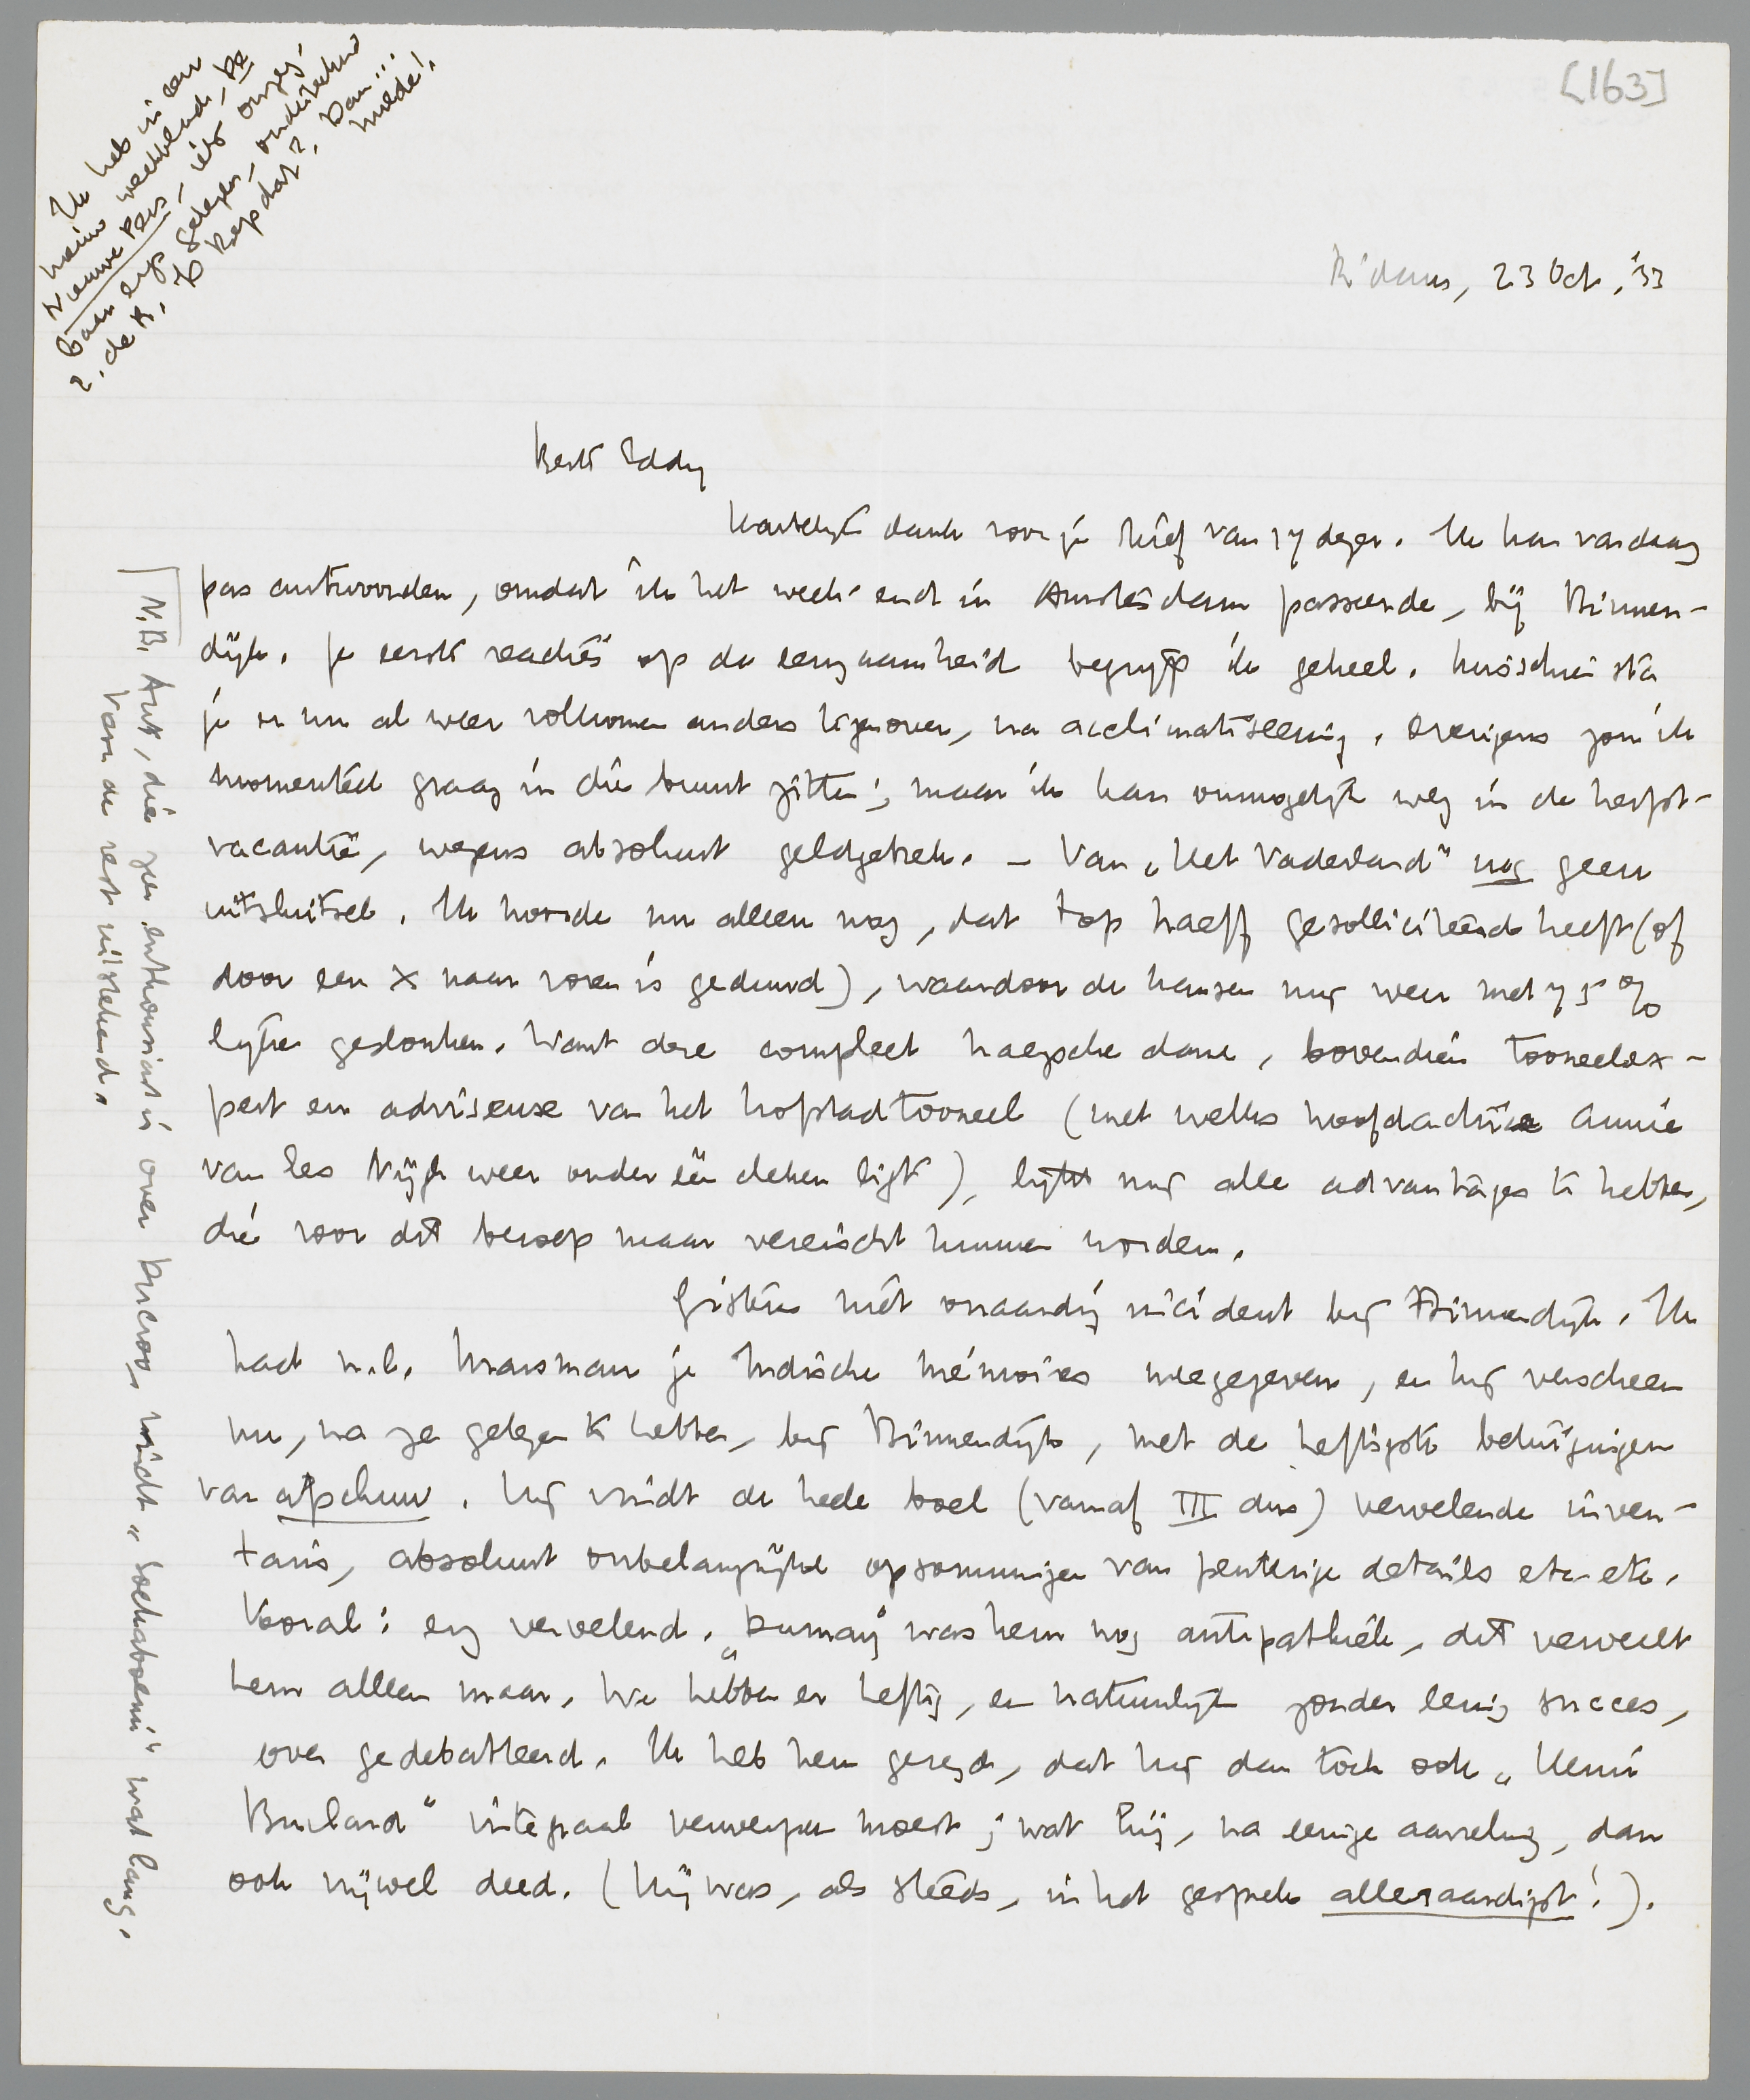 [163]
Ik heb in een
nieuw weekblad, De
Nieuwe Pers, iets onzegbaar
erg gelezen, onderteekend
E. de R. Is Rap dat? Dan...
merde!
R'dam, 23 Oct. '33
Beste Eddy
Hartelijk dank voor je brief van 17 dezer. Ik kan vandaag
pas antwoorden, omdat ik het week-end in Amsterdam passeerde, bij Binnen-
dijk. Je eerste reacties op de eenzaamheid begrijp ik geheel. Misschien sta
je er nu al weer volkomen anders tegenover, na acclimatiseering. Overigens zou ik
momenteel graag in die buurt zitten; maar ik kan onmogelijk weg in de herfst-
vacantie, wegens absoluut geldgebrek. – Van „Het Vaderland" nog geen
uitsluitsel. Ik hoorde nu alleen nog, dat Top Naeff gesolliciteerd heeft (of
door een X naar voren is geduwd), waardoor de kansen mij weer met 75%
lijken geslonken. Want deze compleet haagsche dame, bovendien tooneelex-
pert en adviseuse van het hofstadtooneel (met welks hoofdactrice Annie
van Ees Nijgh weer onder één deken ligt), lijkt mij alle advantages te hebben,
die voor dit beroep maar vereischt kunnen worden.
Gisteren niet onaardig incident bij Binnendijk. Ik
had n.l. Marsman je Indische mémoires meegegeven, en hij verscheen
nu, na ze gelezen te hebben, bij Binnendijk, met de heftigste betuigingen
van afschuw. Hij vindt de heele boel (vanaf III dus) vervelende inven-
taris, absoluut onbelangrijke opsommingen van peuterige details etc. etc.
Vooral: erg vervelend. „Dumay" was hem nog antipathiek, dit verveelt
hem alleen maar. We hebben er heftig, en natuurlijk zonder eenig succes,
over gedebatteerd. Ik heb hem gezegd, dat hij dan toch ook „Henri
Brulard" integraal verwerpen moest; wat hij, na eenige aarzeling, dan
ook vrijwel deed. (Hij was, als steeds, in het gesprek alleraardigst!).
N.B. Ant, die zeer enthousiast is over Ducroo, vindt „Soekaboemi" wat lang.
Van de rest uitstekend.